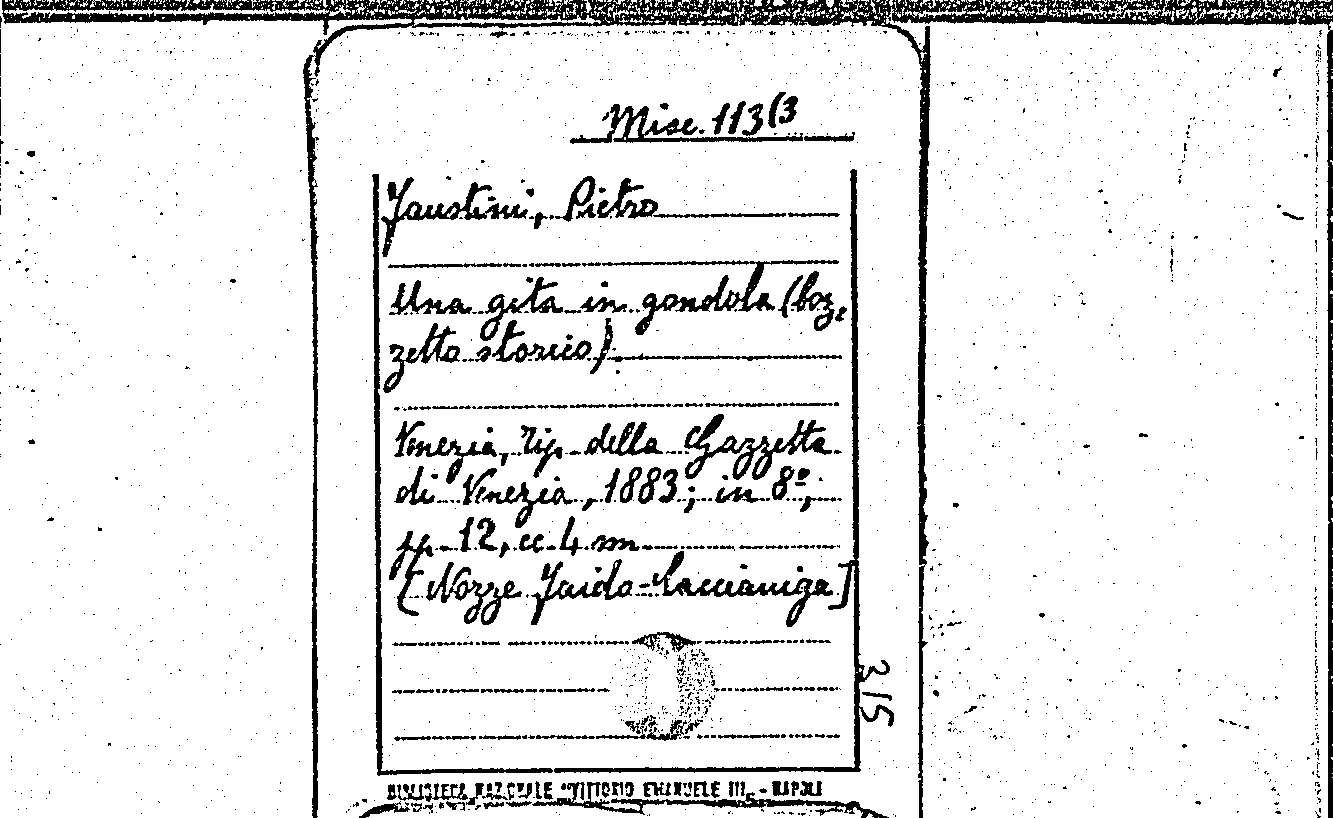 Misc. 113(3
Faustini, Pietro
Una gita in gondola (boz,
zetto storico).
Venezia, Tip. della Gazzetta
di Venezia, 1883; in 8º;
pp. 12, cc 4 nn
[Nozze
3/5
BIBLIOTECA NAZIONALE "VITTORIO EMANUELE III" - NAPOLI